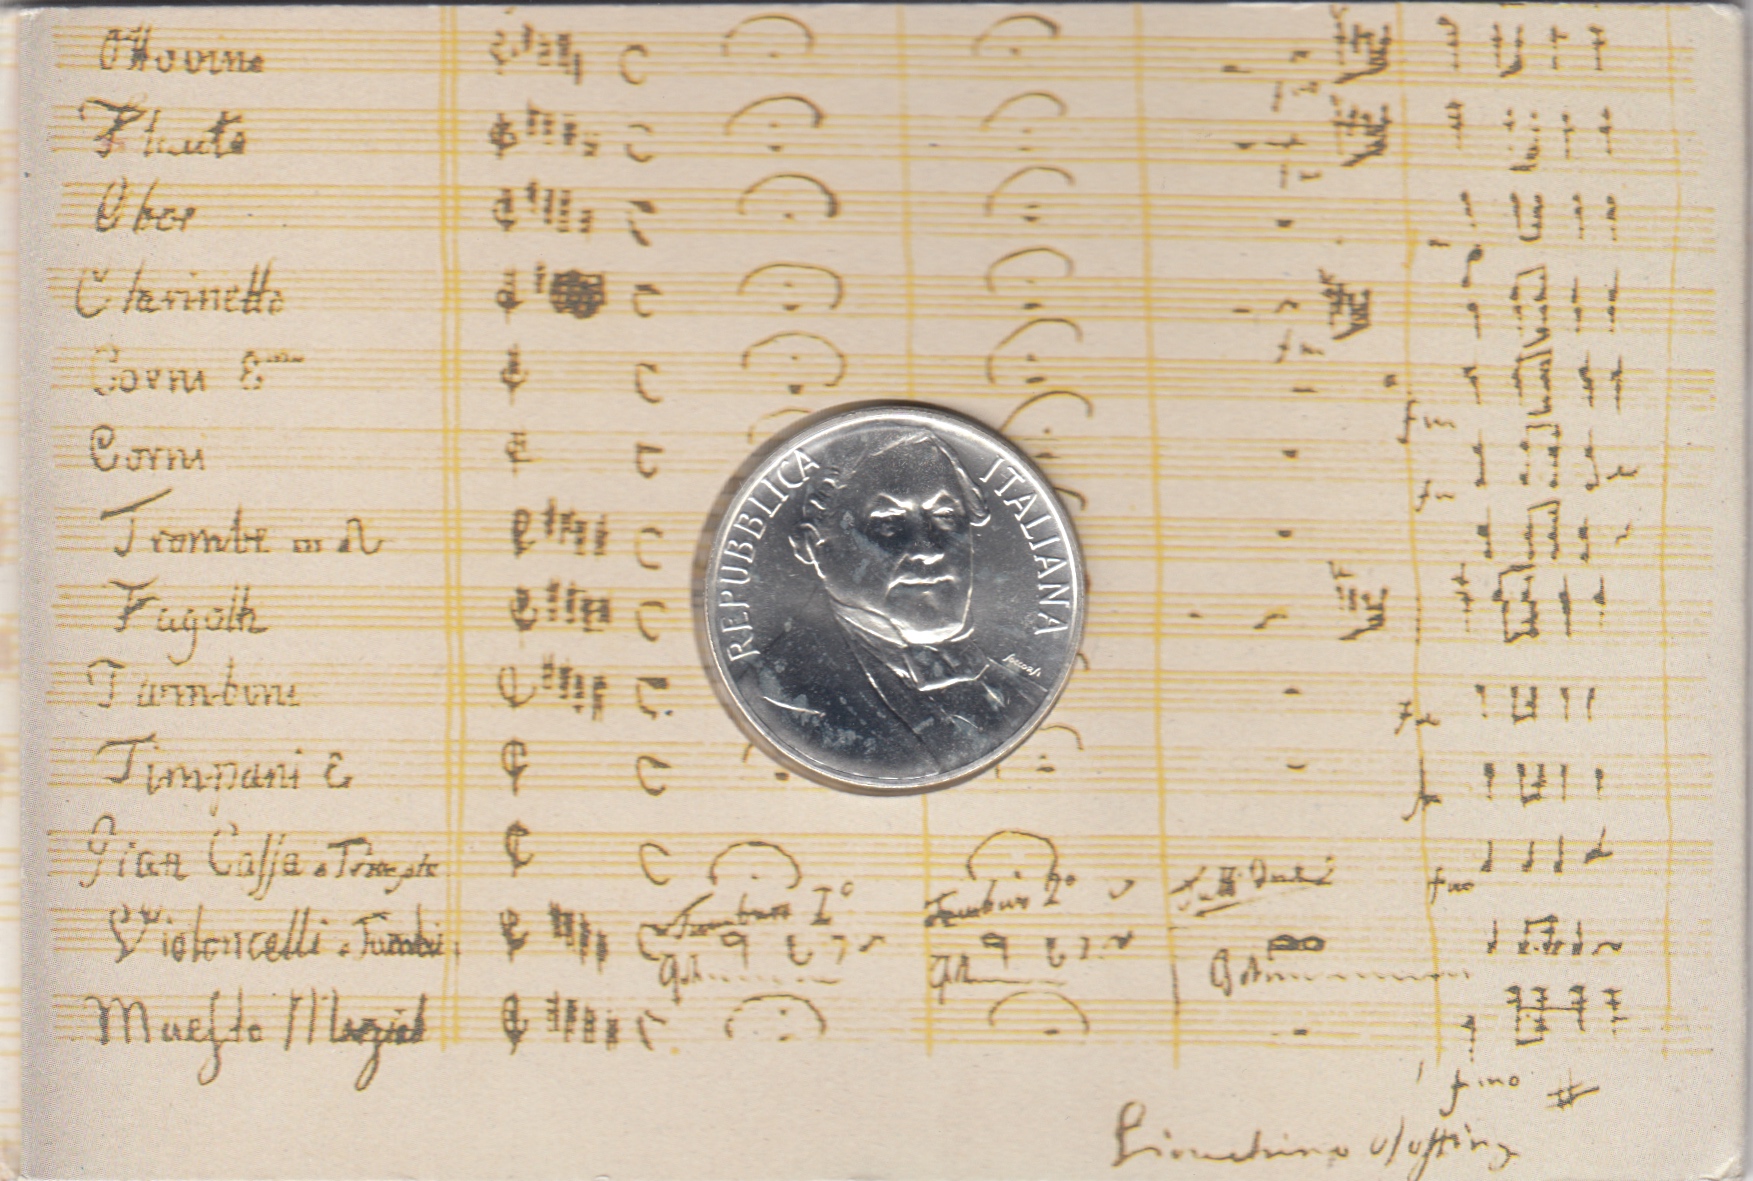 Ottavino
Flauto
Oboe
Clarinetto
Corni E
Corni
Trombe in A
Fagotti
Tromboni
Timpani E
Gran Cassa e Triangolo
Violoncelli e
Maestro
Tamburo I°
Tamburo 2°
REPUBBLICA ITALIANA
Soccorsi
fmo
fmo
Gioachino Rossini